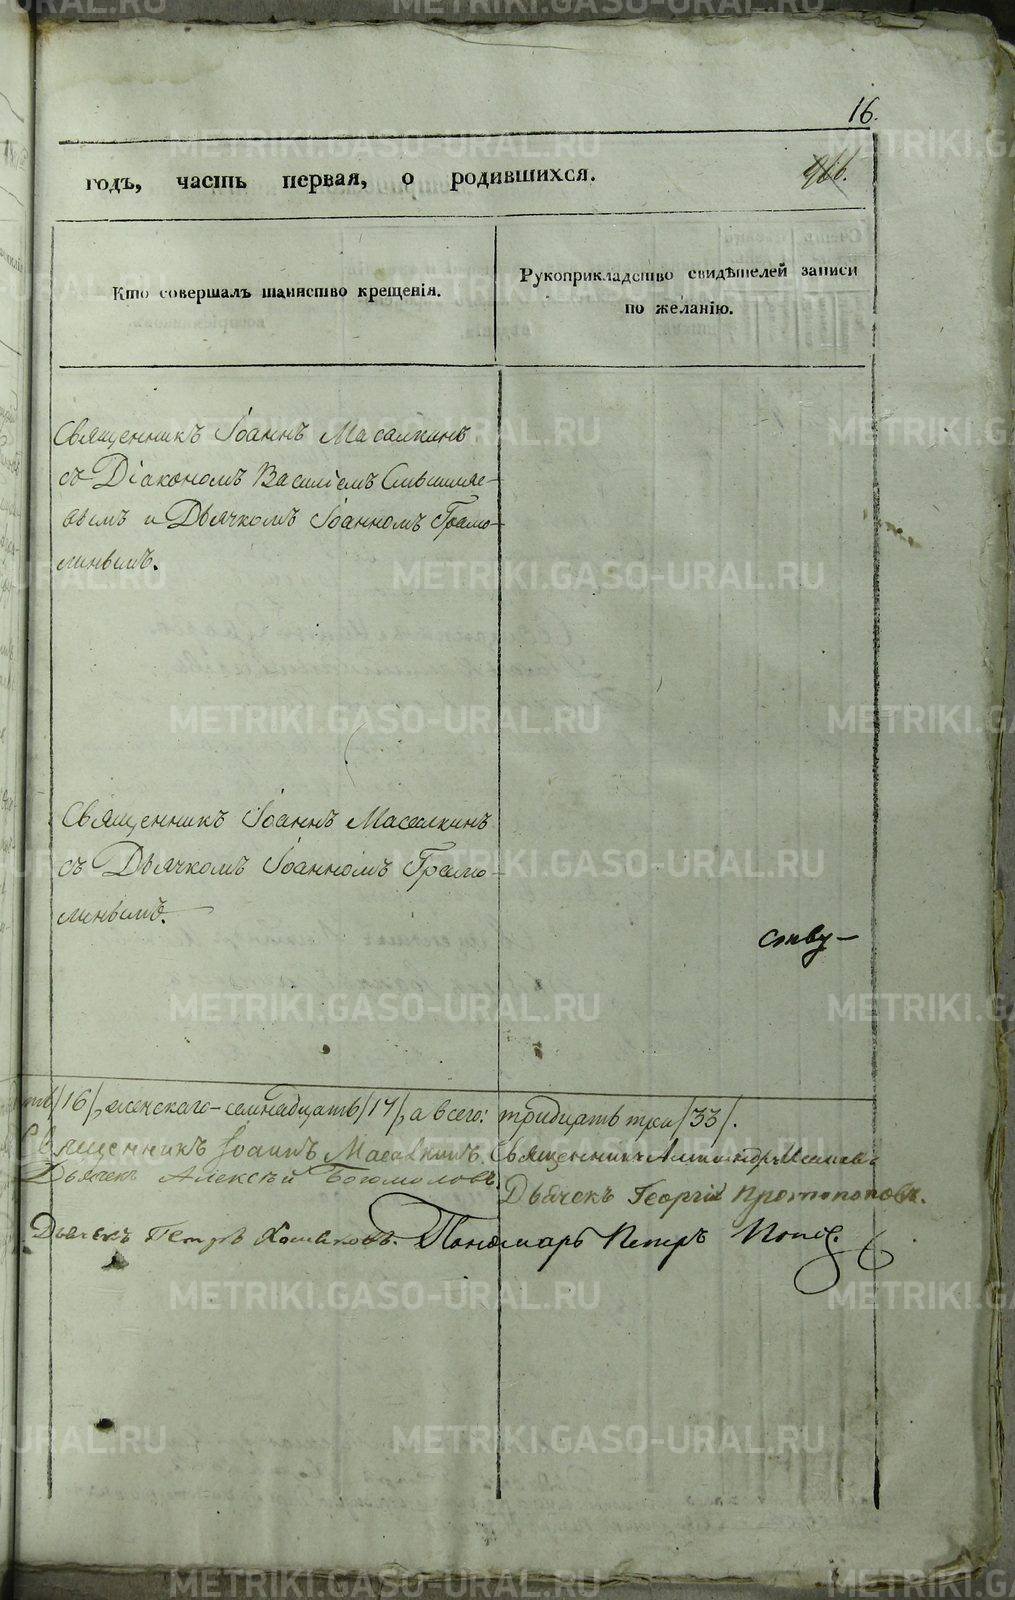 16.
466.
годъ, часть первая, о родившихся.
Кто совершалъ таинство крещенія.
Рукоприкладство свидѣтелей записи
по желанію.
Священникъ Іоаннъ Масалкинъ
съ Діакономъ Василіемъ
и Дьячкомъ Іоанномъ Грамо-
линымъ.
Священникъ Іоаннъ Масалкинъ
съ Дьячкомъ Іоанномъ Грамо-
линымъ.
ству-
/16/, женскаго - семнадцать /17/, а всего: тридцать три /33/.
Священникъ Іоаннъ Масалкинъ. Священникъ Александръ
Дьячекъ Алексѣй Богомоловъ.
Дьячекъ Георгій Протопоповъ.
Дьячекъ Петръ Пономарь Петръ Поповъ.
METRIKI.GASO-URAL.RU